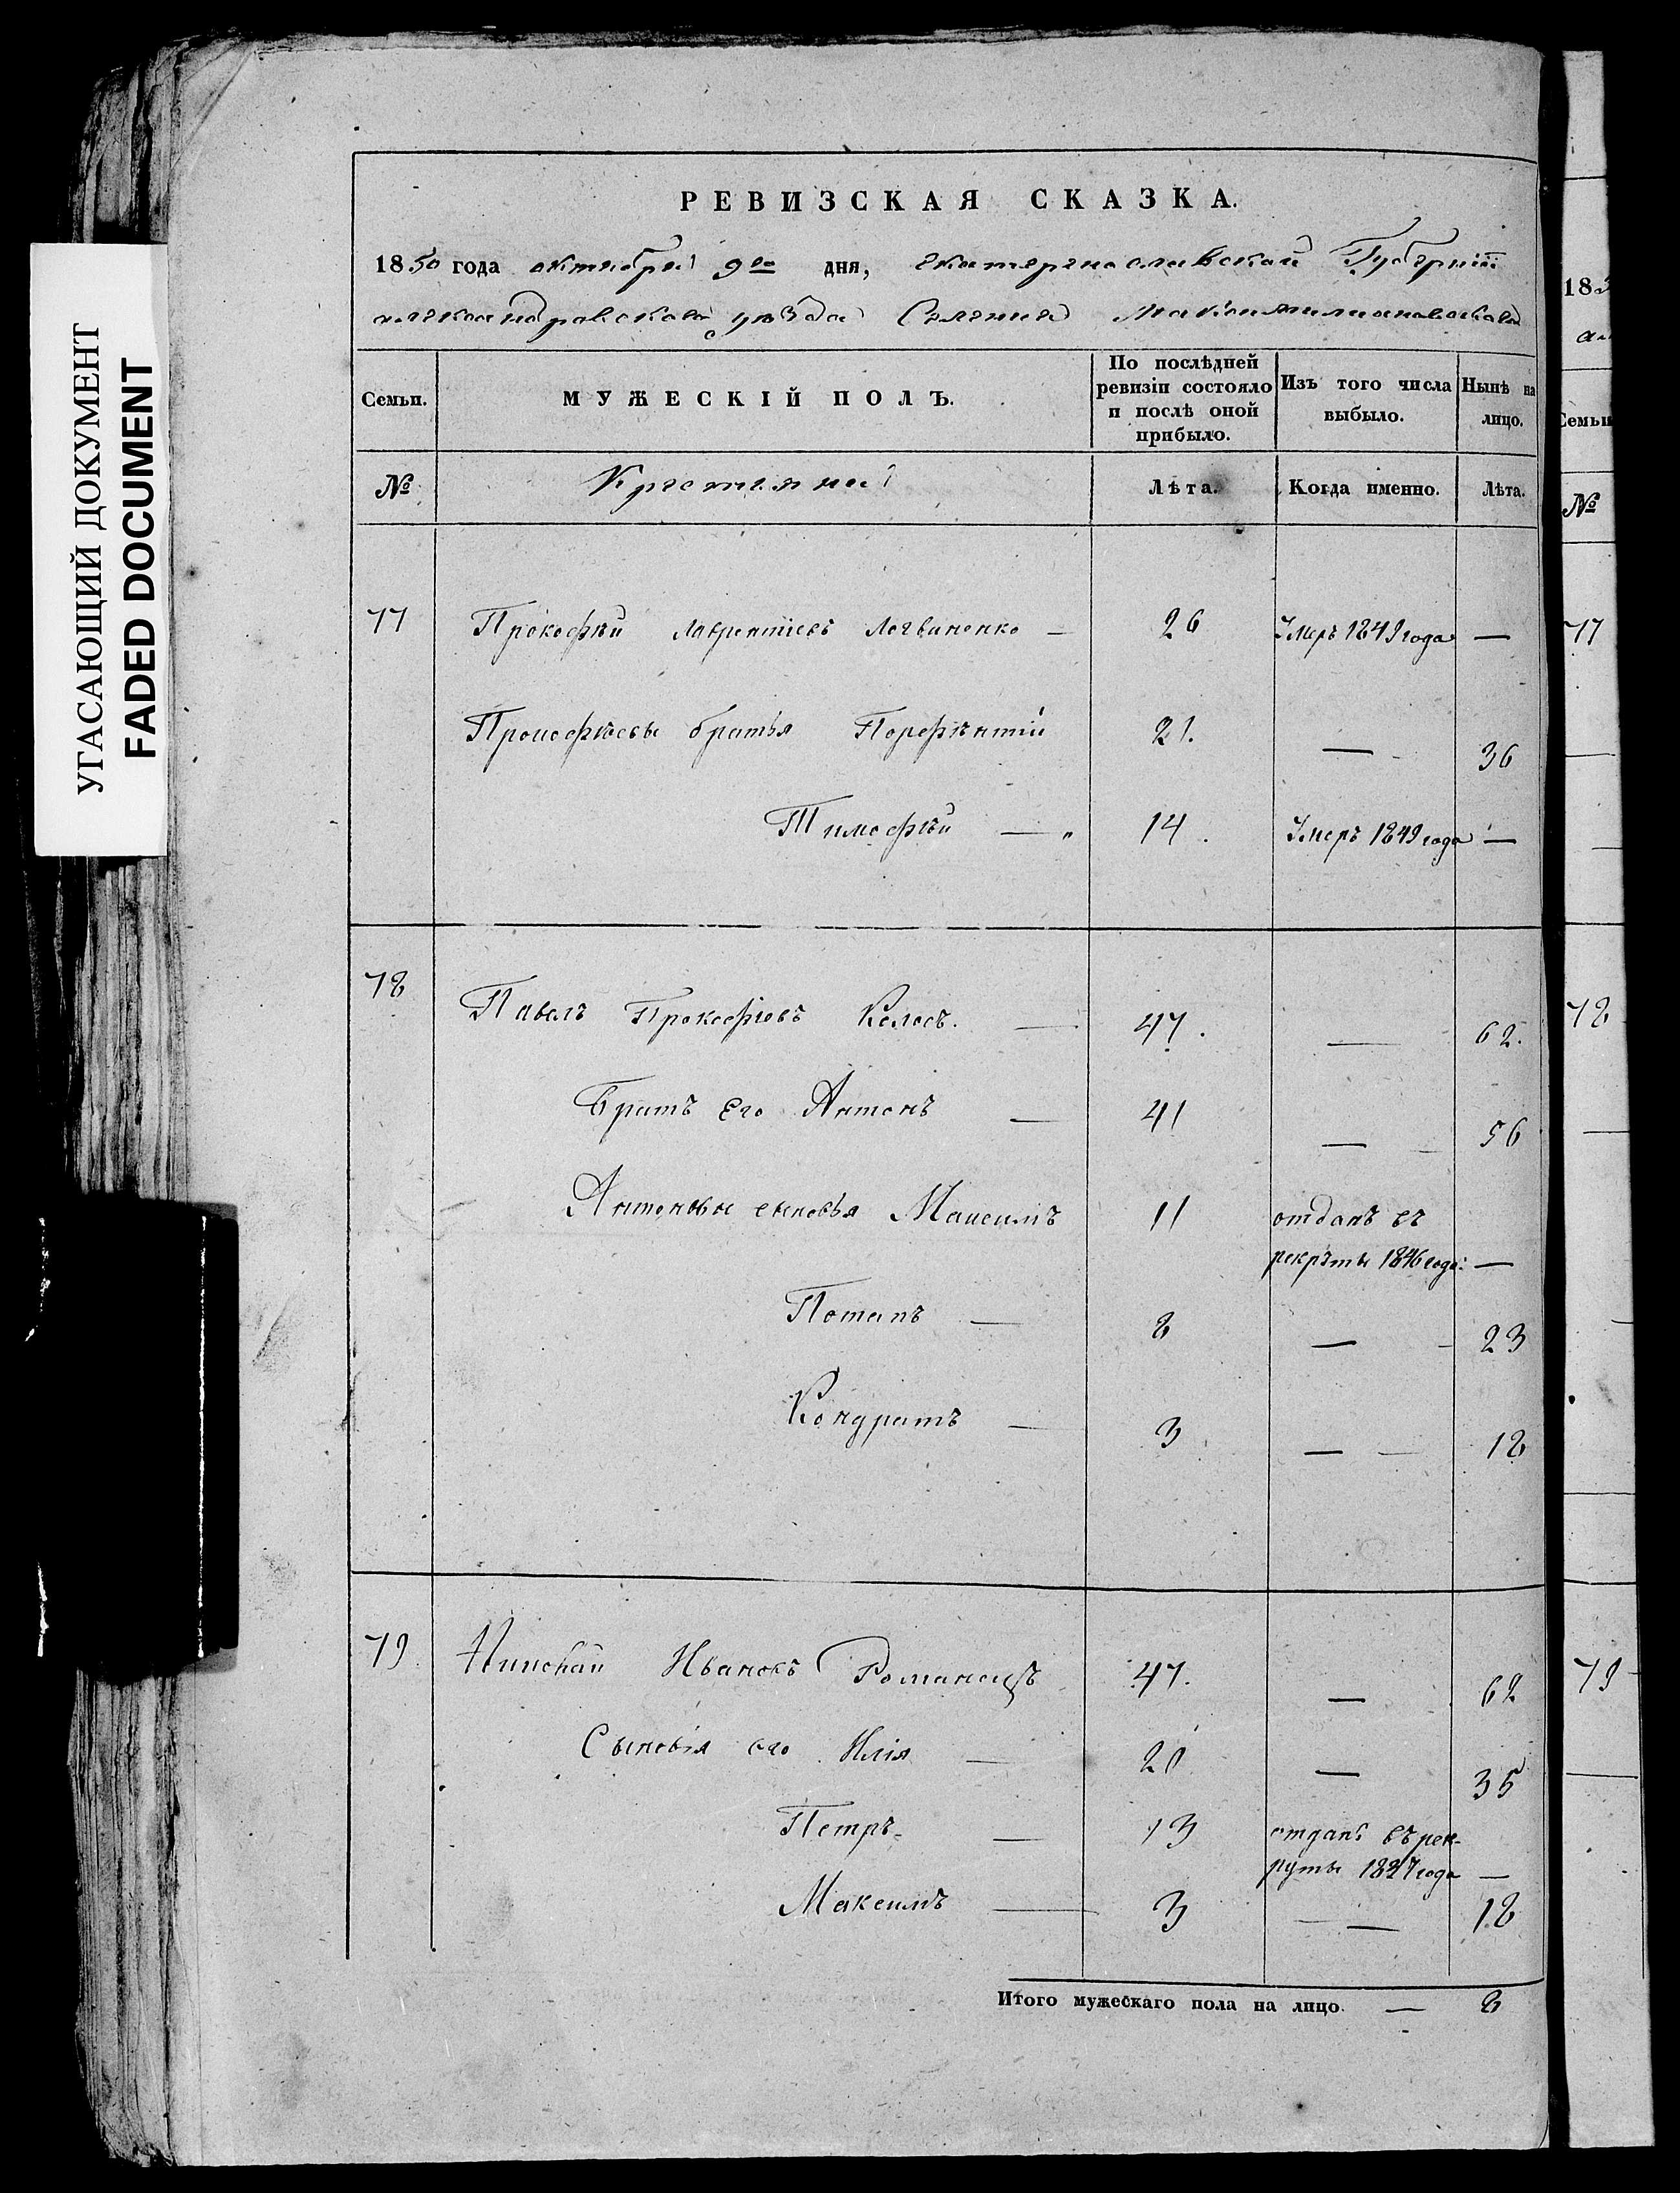 УГАСАЮЩИЙ ДОКУМЕНТ
FADED DOCUMENT
РЕВИЗСКАЯ СКАЗКА.
1850 года октября 9го дня, екатеринославской Губерніи
александровскаго уѣзда Селенія Максимилиановскаго
Семьи. МУЖЕСКІЙ ПОЛЪ. По послѣдней ревизіи состояло и послѣ оной прибыло. Изъ того числа выбыло. Нынѣ на лицо.
№ Крестьяне Лѣта. Когда именно. Лѣта.
77 Прокофѣй Лаврентіевъ Логвиненко — 26 Умеръ 1849 года —
Прокофѣевы братья Порфѣнтій 21. — 36
Тимофѣй — 14. Умеръ 1849 года —
78 Павелъ Прокофіевъ Колосъ. — 47. — 62.
Братъ Его Антонъ — 41 — 56
Антоновы сыновья Максимъ 11 отданъ въ
рекруты 1846 года: —
Потапъ — 8 — 23
Кондратъ — 3 — 18
79 Ивановъ Романецъ 47. — 62
Сыновья его Илія — 20 — 35
Петръ — 13 отданъ въ рек-
руты 1837 года —
Максимъ — 3 — 18
Итого мужескаго пола на лицо — 8
183
Семьи
№
77
78
79